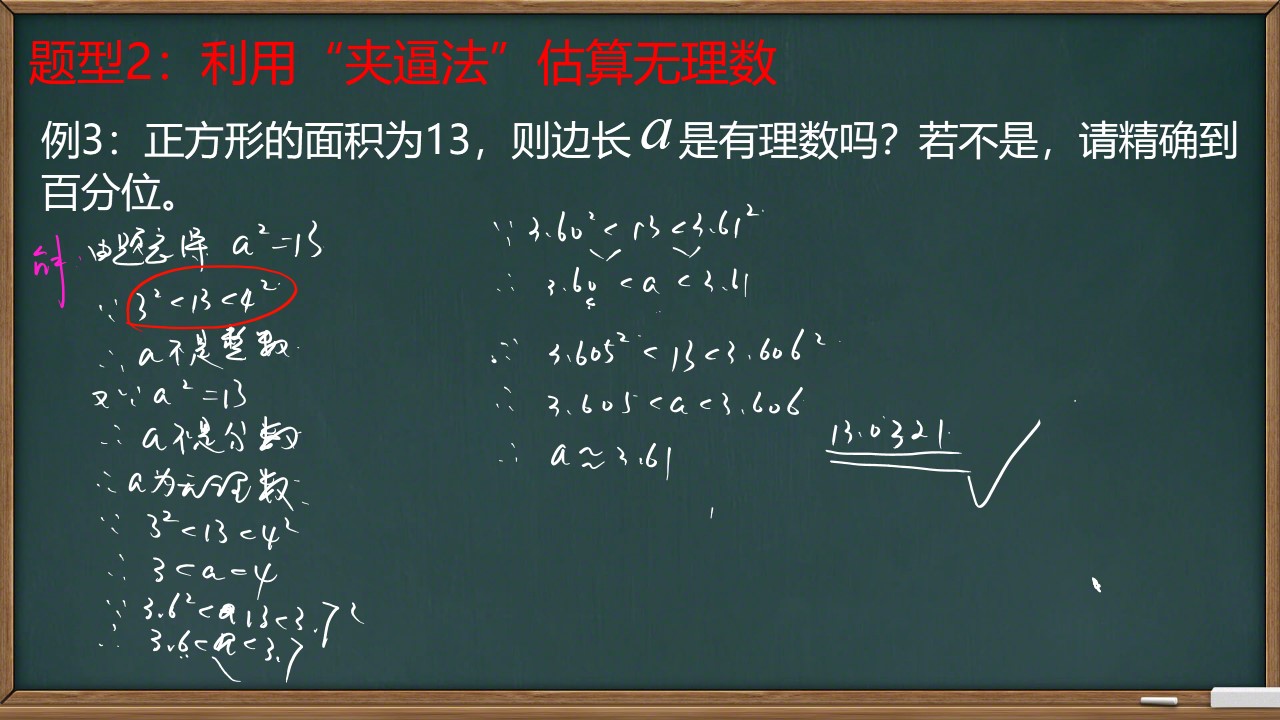 题型2：利用“夹逼法”估算无理数
例3：正方形的面积为13，则边长 a 是有理数吗？若不是，请精确到
百分位。
解 由题意得 a²=13
∵ 3²<13<4²
∴ a不是整数
又∵ a²=13
∴ a不是分数
∴ a为无理数
∵ 3²<13<4²
∴ 3<a=4
∵ 3.6²<13<3.7²
∴ 3.6<a<3.7
∵ 3.60²<13<3.61²
∴ 3.60<a<3.61
∵ 3.605²<13<3.606²
∴ 3.605<a<3.606
∴ a≈3.61
13.0321